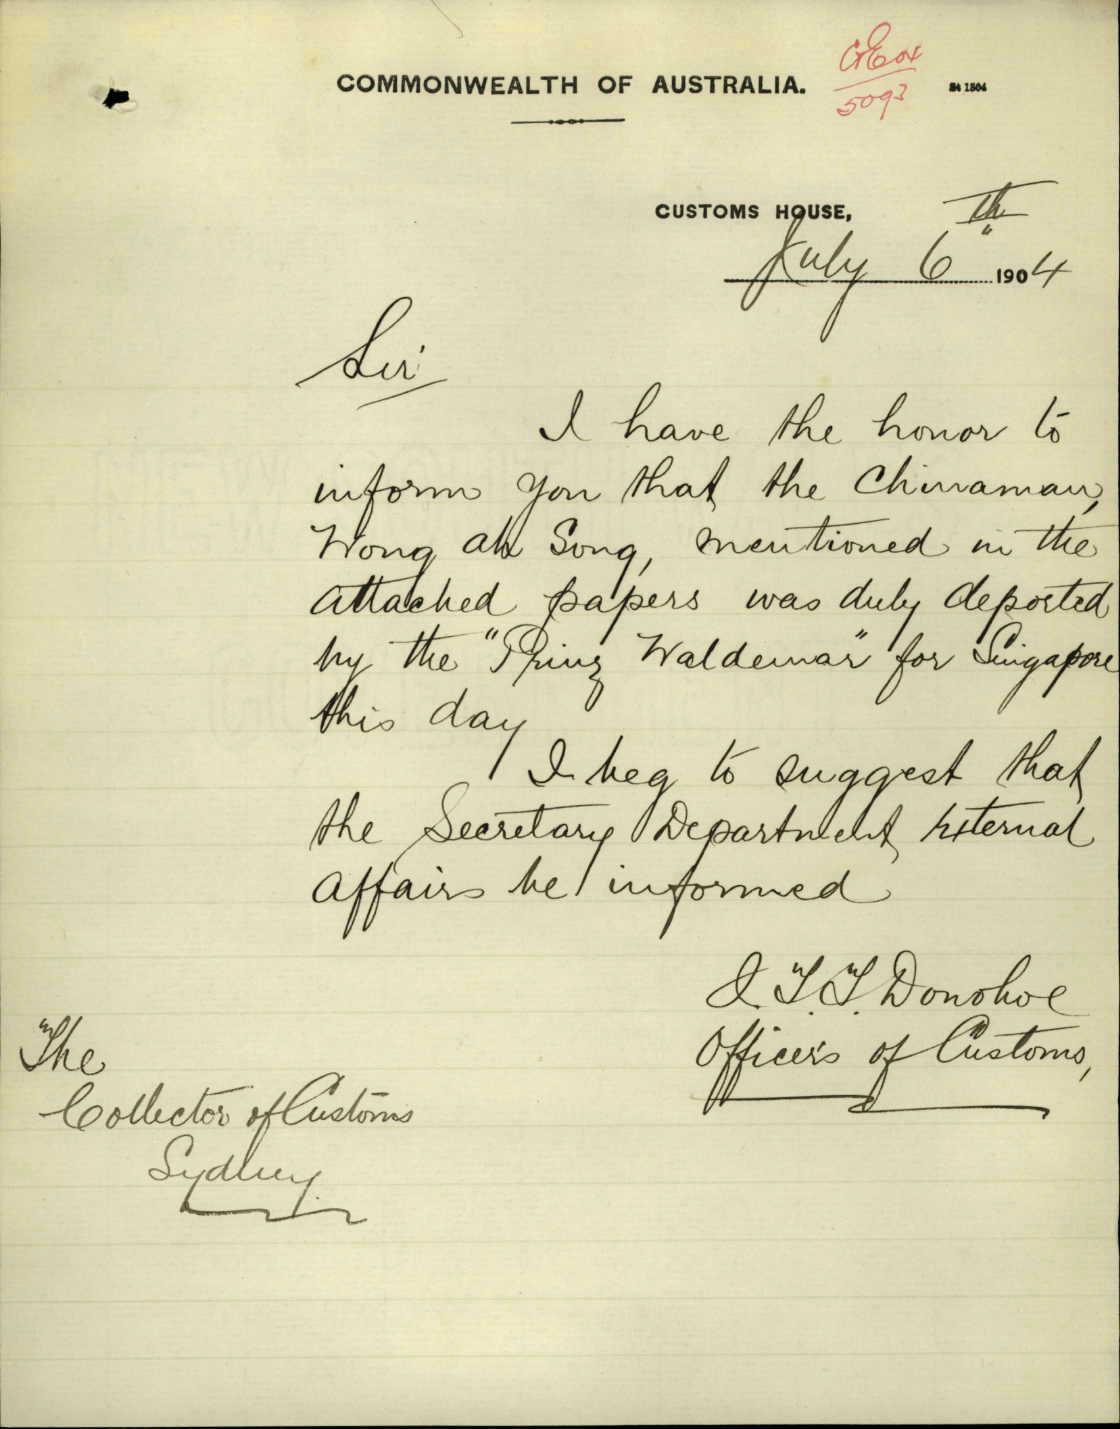 COMMONWEALTH OF AUSTRALIA.
5093
CUSTOMS HOUSE,
July 6th 1904
Sir
I have the honor to
inform you that the Chinaman,
Wong Ah Song, mentioned in the
attached papers was duly deported
by the "Prinz Waldemar" for Singapore
this day
I beg to suggest that
the Secretary Department External
Affairs be informed
J. T. T. Donohoe
Officers of Customs,
The
Collector of Customs
Sydney.